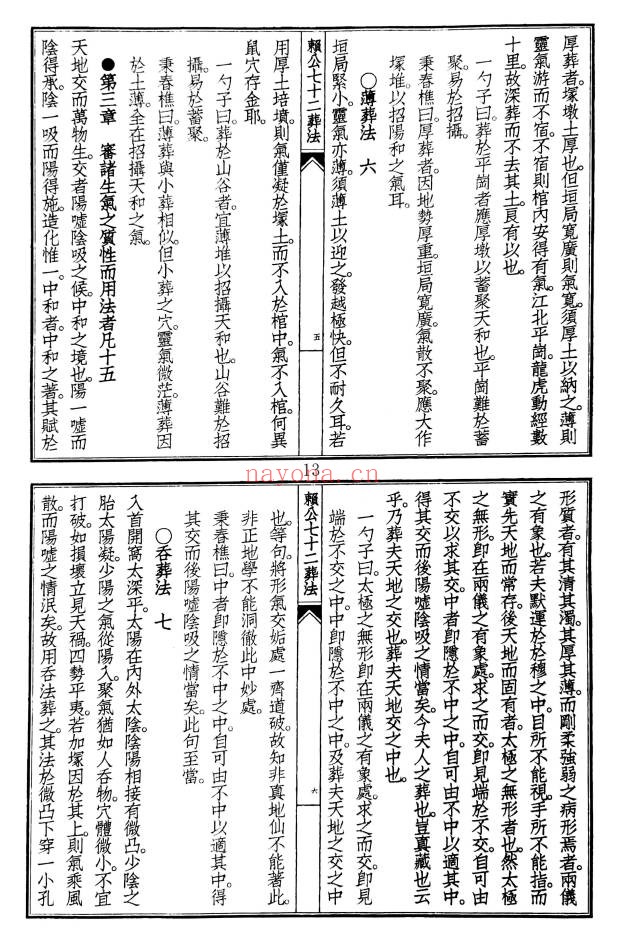 厚葬者。塚墩土厚也。但垣局寬廣則氣寬。須厚土以納之。薄則
靈氣游而不宿。不宿則棺內安得有氣。江北平崗。龍虎動經數
十里。故深葬而不去其土。良有以也。
一勺子曰。葬於平崗者。應厚墩以蓄聚天和也。平崗難於蓄
聚。易於招攝。
秉春樵曰。厚葬者。因地勢厚重。垣局寬廣。氣散不聚。應大作
塚堆。以招陽和之氣耳。
○薄葬法 六
垣局緊小。靈氣亦薄。須薄土以迎之。發越極快。但不耐久耳。若
賴公七十二葬法
五
用厚土培墳。則氣僅凝於塚土。而不入於棺中。氣不入棺。何異
鼠穴存金耶。
一勺子曰。葬於山谷者。宜薄堆以招攝天和也。山谷難於招
攝。易於蓄聚。
秉春樵曰。薄葬與小葬相似。但小葬之穴。靈氣微茫。薄葬因
於土薄。全在招攝天和之氣。
●第三章 審諸生氣之質性而用法者凡十五
天地交而萬物生。交者陽噓陰吸之候。中和之境也。陽一噓而
陰得承。陰一吸而陽得施。造化惟一中和者。中和之著。其賦於
13
nayona.cn
形質者。有其清其濁。其厚其薄。而剛柔強弱之病形焉者。兩儀
之有象也。若夫默運於於穆之中。目所不能視。手所不能指。而
實先天地而常存。後天地而固有者。太極之無形者也。然太極
之無形。卽在兩儀之有象處。求之而交。卽見端於不交。自可由
不交以求其交。中者卽隱於不中之中。自可由不中以適其中。
得其交而後陽噓陰吸之情當矣。今夫人之葬也。豈真藏也云
乎。乃葬夫天地之交也。葬夫天地交之中也。
一勺子曰。太極之無形。卽在兩儀之有象處。求之而交。卽見
端於不交之中。中卽隱於不中之中。及葬夫天地之交之中
賴公七十二葬法
六
也。等句。將形氣交姤處。一齊道破。故知非真地仙不能著此。
非正地學不能洞徹此中妙處。
秉春樵曰。中者卽隱於不中之中。自可由不中以適其中。得
其交而後陽噓陰吸之情當矣。此句至當。
○吞葬法 七
入首開窩太深平。太陽在內。外太陰。陰陽相接有微凸。少陰之
胎太陽凝。少陽之氣從陽入。聚氣猶如人吞物。穴體微小。不宜
打破。如損壞立見天禍。四勢平夷。若加塚因於其上。則氣乘風
散。而陽噓之情泯矣。故用吞法葬之。其法於微凸下穿一小孔